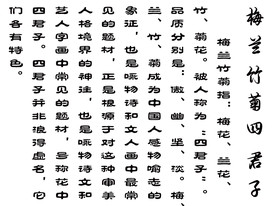 梅兰竹菊四君子
梅兰竹菊指:梅花、兰花、
竹、菊花。被人称为“四君子”。
品质分别是:傲、幽、坚、淡。梅、
兰、竹、菊成为中国人感物喻志的
象征,也是咏物诗和文人画中最常
见的题材,正是根源于对这种审美
人格境界的神往,也是咏物诗文和
艺人字画中常见的题材,号称花中
四君子。四君子并非浪得虚名,它
们各有特色。